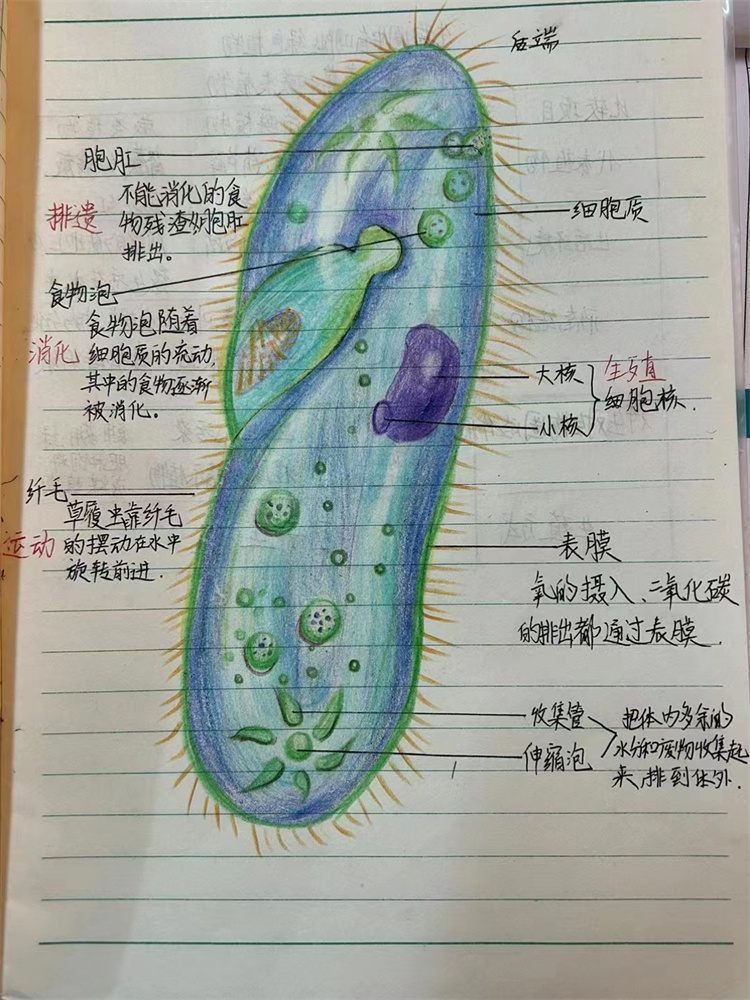 后端
胞肛
排遗
不能消化的食
物残渣从胞肛
排出。
细胞质
食物泡
消化
食物泡随着
细胞质的流动,
其中的食物逐渐
被消化。
大核
小核
生殖
细胞核.
纤毛
运动
草履虫靠纤毛
的摆动在水中
旋转前进.
表膜
氧的摄入、二氧化碳
的排出都通过表膜.
收集管
伸缩泡
把体内多余的
水分和废物收集起
来,排到体外.
比较项目